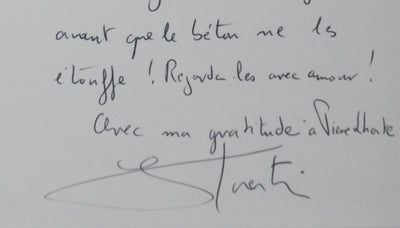 avant que le béton ne les
étouffe ! Regarde les avec amour !
Avec ma gratitude à